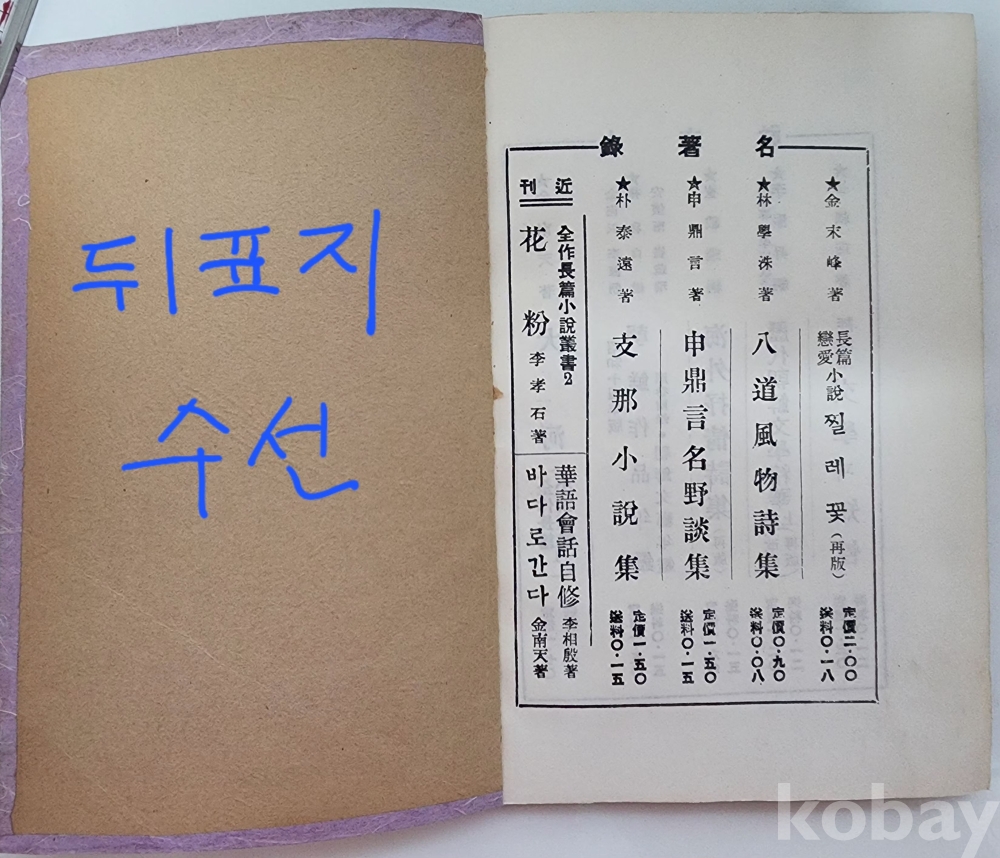 뒤표지
수선
名著錄
★金末峰著
長篇
戀愛
小說 찔레꽃 (再版)
定價二·〇〇
送料〇·一八
★林學洙著
八道風物詩集
定價〇·九〇
送料〇·〇八
★申鼎言著
申鼎言名野談集
定價一·五〇
送料〇·一五
★朴泰遠著
支那小說集
定價一·五〇
送料〇·一五
近刊
全作長篇小說叢書2
花粉 李孝石著
華語會話自修 李相殷著
바다로간다 金南天著
kobay